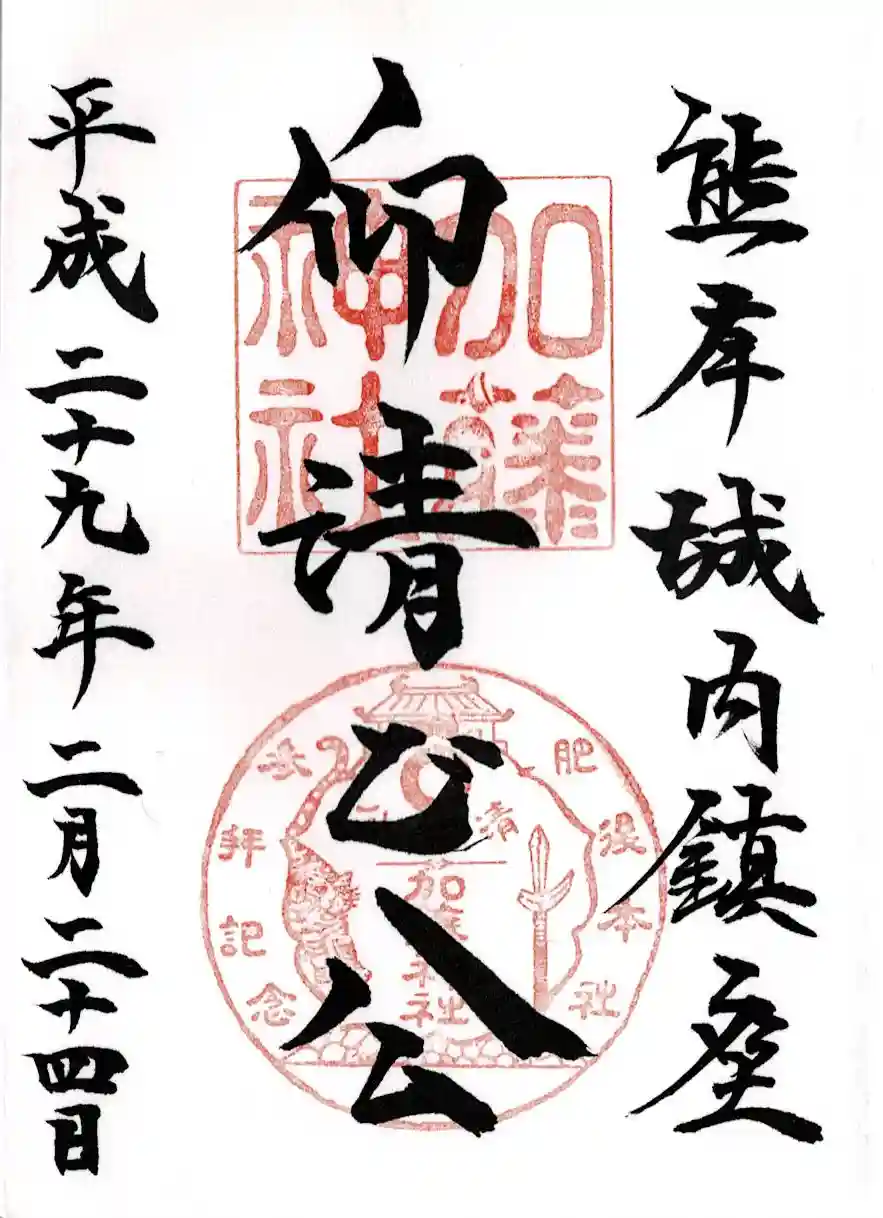 熊本城内鎮座
仰清正公
平成二十九年二月二十四日
加藤
神社
肥後本社
参拝記念
清正公
加藤神社